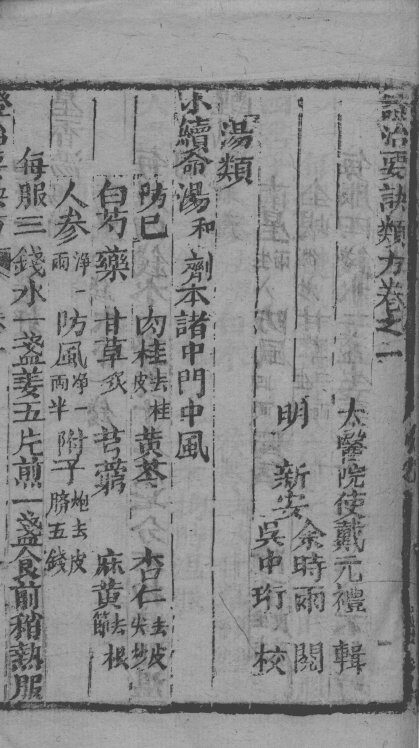 證治要訣類方卷之一
太醫院使戴元禮 輯
明 新安 余時雨 閱
吳中珩 校
湯類
小續命湯 和劑本諸中門中風
防已 肉桂去皮桂 黃芩 杏仁去皮尖炒
白芍藥 甘草炙 芎藭 麻黃去根節
人參淨一兩 防風淨一兩半 附子炮去皮臍五錢
每服三錢水一盞姜五片煎一盞食前稍熱服